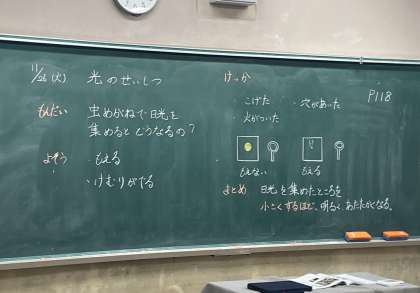 11/26(火) 光のせいしつ
もんだい 虫めがねで日光を
集めるとどうなるの？
よそう ・もえる
・けむりがでる
けっか
・こげた ・穴があいた
・火がついた
P118
もえない もえる
まとめ 日光を集めたところを
小さくするほど、明るく、あたたかくなる。